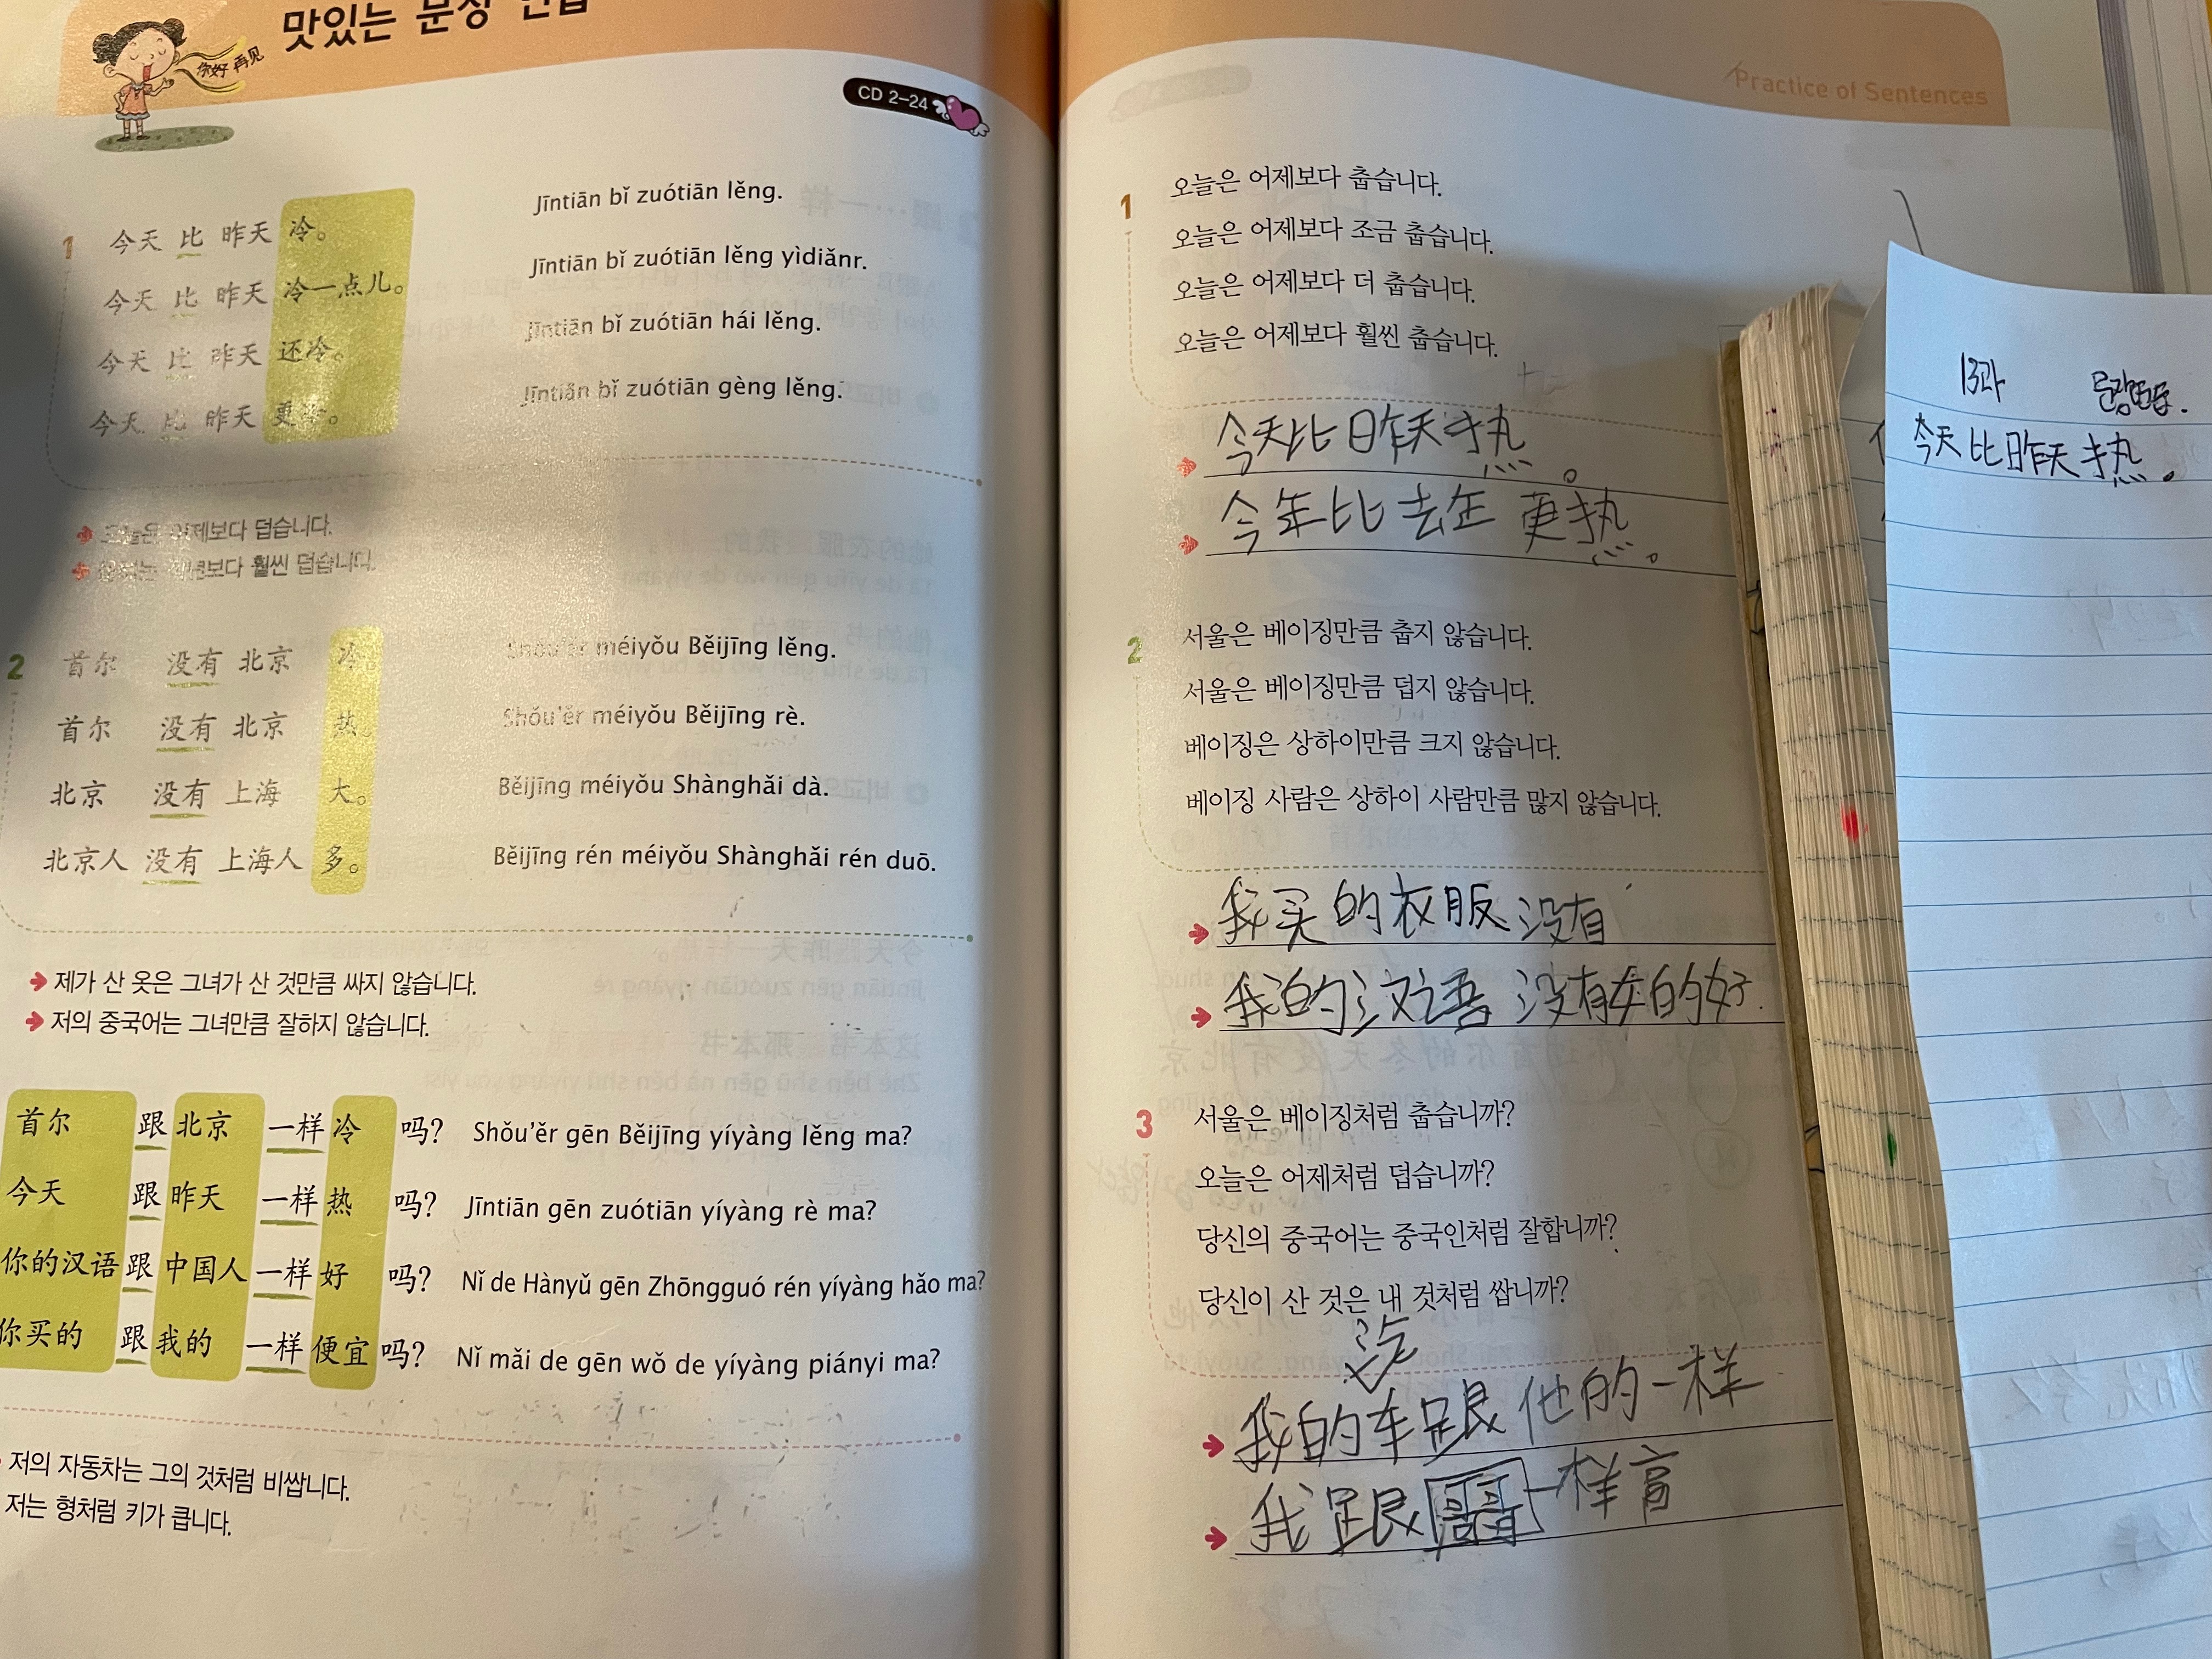 맛있는 문장 연습
你好 再见
CD 2-24
1
今天 比 昨天 冷。 Jīntiān bǐ zuótiān lěng.
今天 比 昨天 冷一点儿。 Jīntiān bǐ zuótiān lěng yìdiǎnr.
今天 比 昨天 还冷。 Jīntiān bǐ zuótiān hái lěng.
今天 比 昨天 更冷。 Jīntiān bǐ zuótiān gèng lěng.
오늘은 어제보다 덥습니다.
보다 훨씬 덥습니다.
2
首尔 没有 北京 冷。 Shǒu'ěr méiyǒu Běijīng lěng.
首尔 没有 北京 热。 Shǒu'ěr méiyǒu Běijīng rè.
北京 没有 上海 大。 Běijīng méiyǒu Shànghǎi dà.
北京人 没有 上海人 多。 Běijīng rén méiyǒu Shànghǎi rén duō.
제가 산 옷은 그녀가 산 것만큼 싸지 않습니다.
저의 중국어는 그녀만큼 잘하지 않습니다.
首尔 跟 北京 一样 冷 吗? Shǒu'ěr gēn Běijīng yíyàng lěng ma?
今天 跟 昨天 一样 热 吗? Jīntiān gēn zuótiān yíyàng rè ma?
你的汉语 跟 中国人 一样 好 吗? Nǐ de Hànyǔ gēn Zhōngguó rén yíyàng hǎo ma?
你买的 跟 我的 一样 便宜 吗? Nǐ mǎi de gēn wǒ de yíyàng piányi ma?
저의 자동차는 그의 것처럼 비쌉니다.
저는 형처럼 키가 큽니다.
Practice of Sentences
1
오늘은 어제보다 춥습니다.
오늘은 어제보다 조금 춥습니다.
오늘은 어제보다 더 춥습니다.
오늘은 어제보다 훨씬 춥습니다.
今天比昨天热。
今年比去年更热。
2
서울은 베이징만큼 춥지 않습니다.
서울은 베이징만큼 덥지 않습니다.
베이징은 상하이만큼 크지 않습니다.
베이징 사람은 상하이 사람만큼 많지 않습니다.
我买的衣服没有
我的汉语没有她的好.
3
서울은 베이징처럼 춥습니까?
오늘은 어제처럼 덥습니까?
당신의 중국어는 중국인처럼 잘합니까?
당신이 산 것은 내 것처럼 쌉니까?
汽
我的车跟他的一样
我跟哥哥一样高
13과
今天比昨天热。